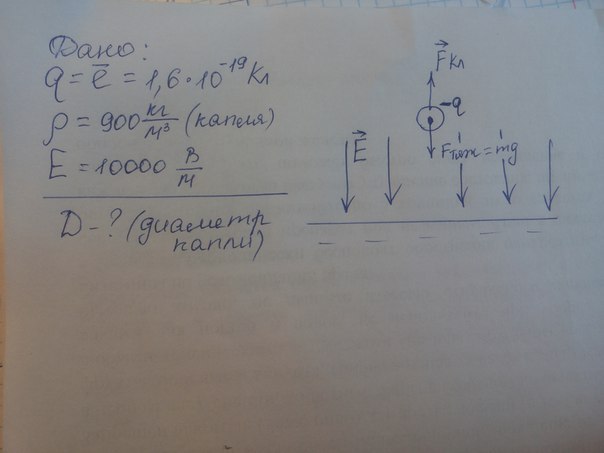 Дано:
q = e̅ = 1,6·10⁻¹⁹ Кл
ρ = 900 кг/м³ (капля)
E = 10000 В/м
D - ? (диаметр
капли)
F⃗кл
-q
E⃗
Fтяж = mg